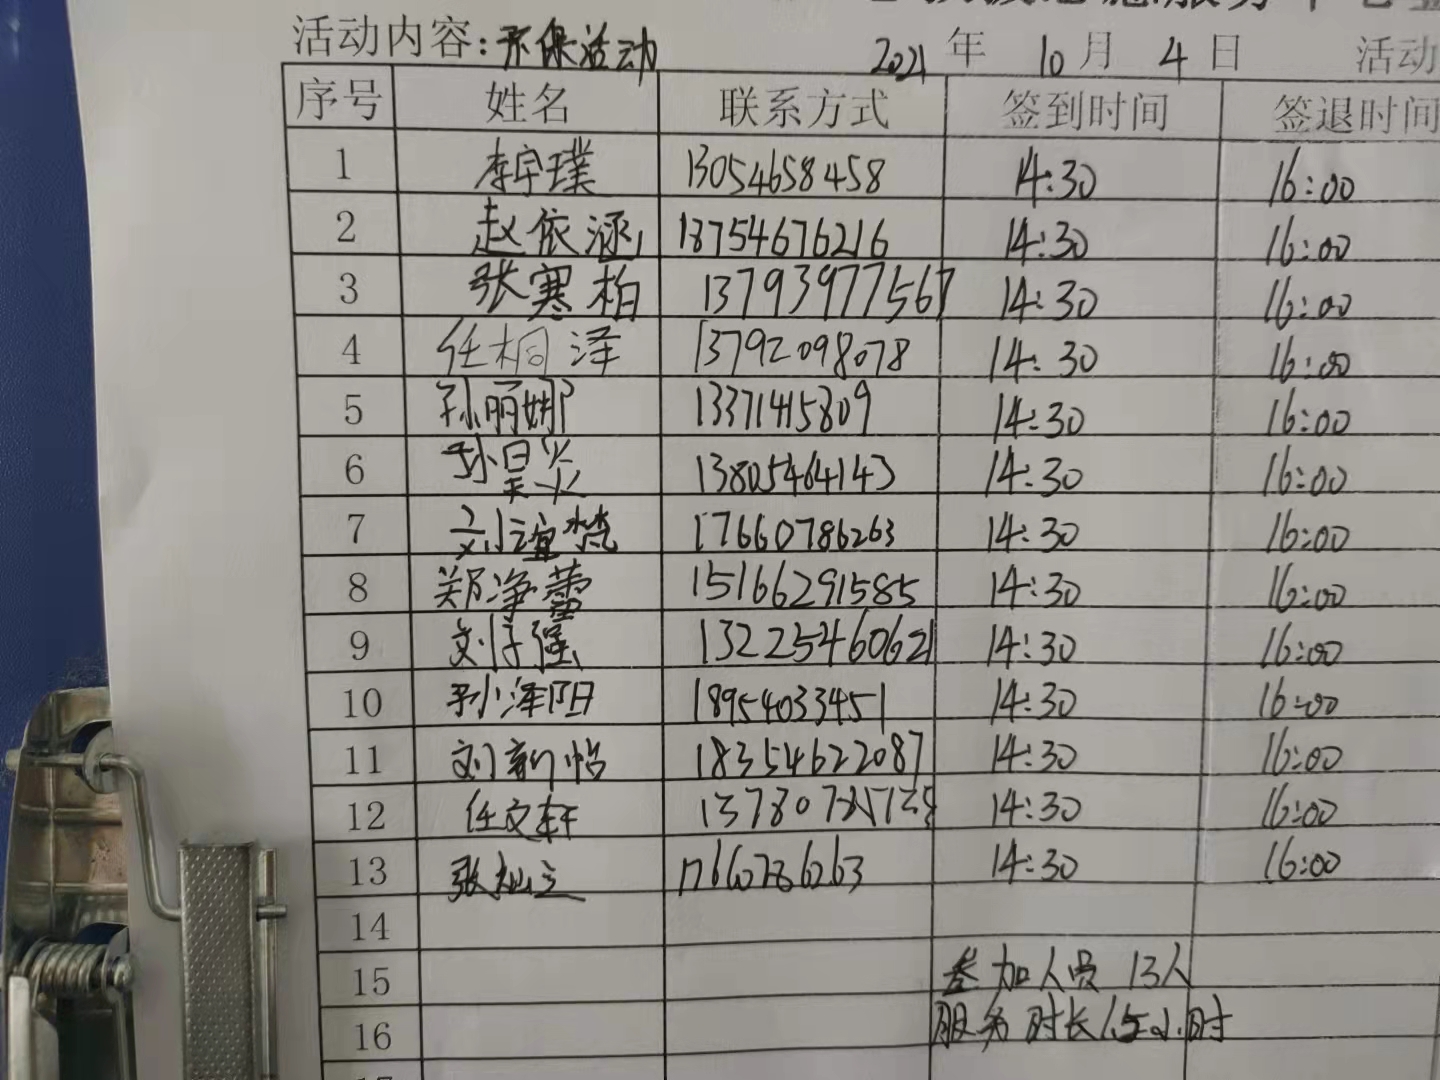 活动内容:环保活动 2021年10月4日 活动
序号 姓名 联系方式 签到时间 签退时间
1 李宇璞 13054658458 14:30 16:00
2 赵依涵 18754676216 14:30 16:00
3 张寒柏 13793977567 14:30 16:00
4 任桐泽 13792098078 14:30 16:00
5 孙丽娜 13371415809 14:30 16:00
6 孙昊 13805464143 14:30 16:00
7 刘谊梵 17660786263 14:30 16:00
8 郑净蕾 15166291585 14:30 16:00
9 刘子强 13225460621 14:30 16:00
10 孙泽阳 18954033451 14:30 16:00
11 刘新怡 18354622087 14:30 16:00
12 任文轩 14:30 16:00
13 张 17660786263 14:30 16:00
14
15 参加人员 13人
16 服务时长1.5小时